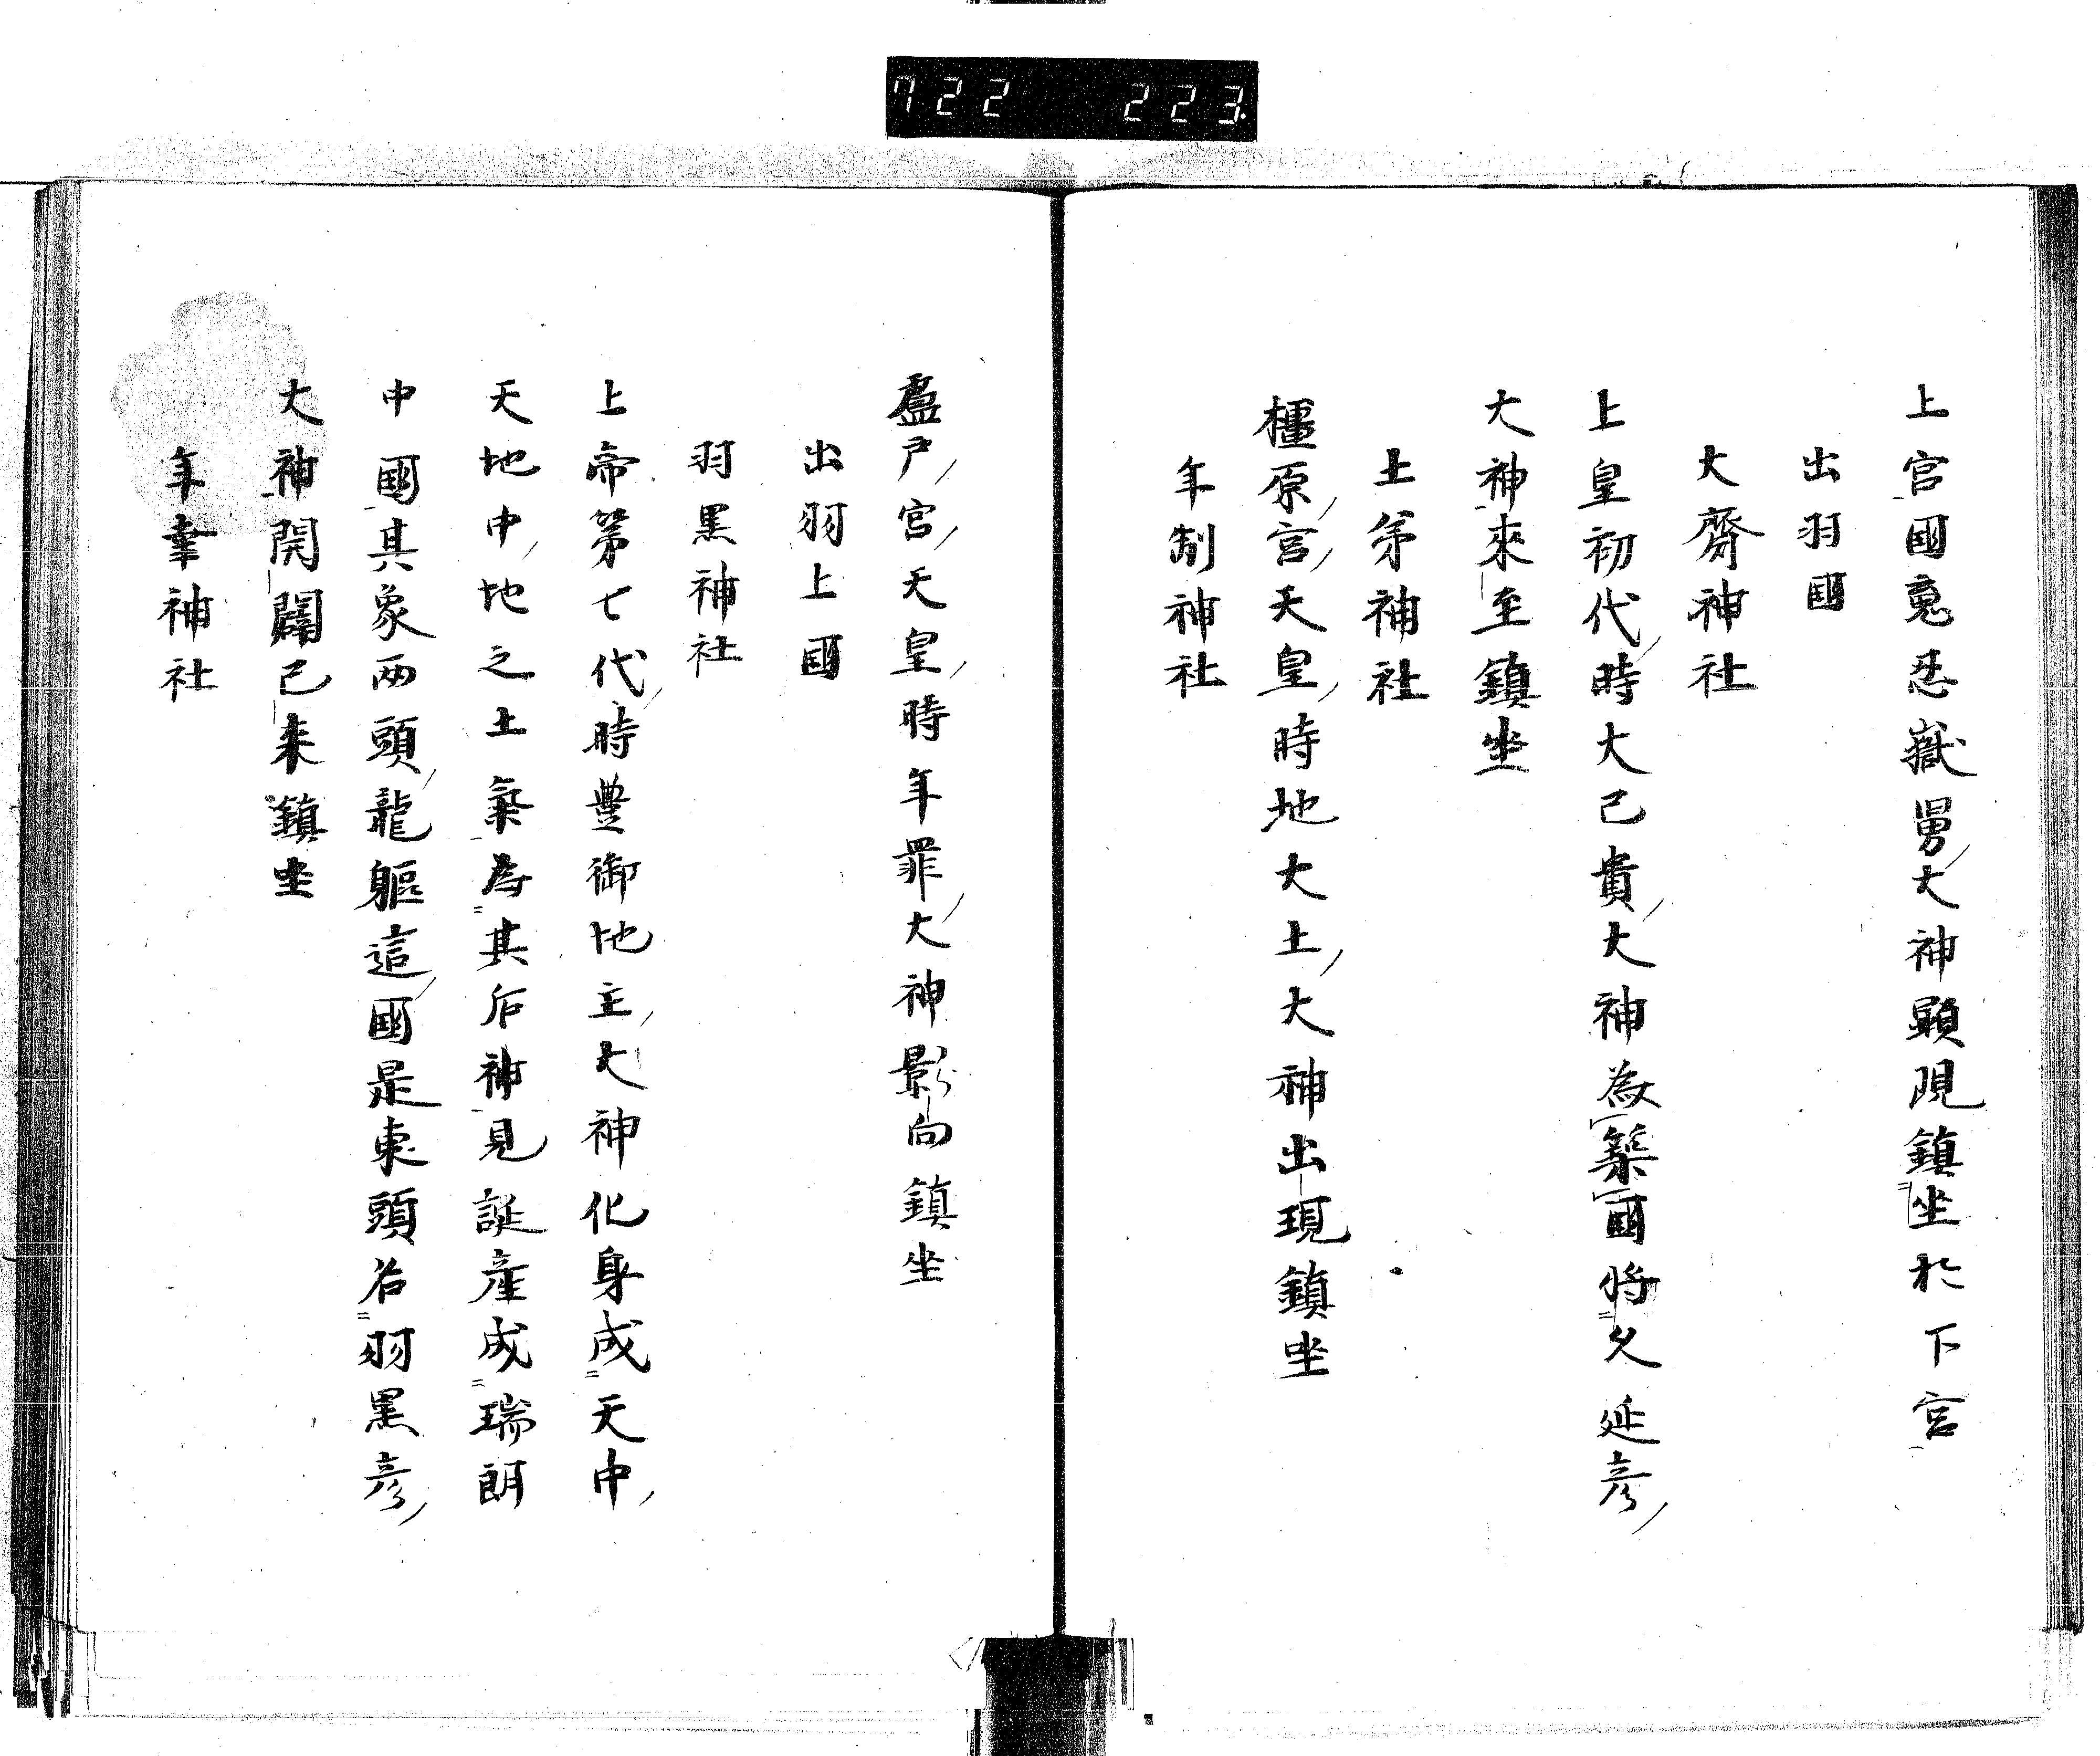 722 223
上宮國寬忍嶽男大神顯現鎮坐於下宮
出羽國
大齋神社
上皇初代時大己貴大神為築國將久延彦
大神來至鎮坐
土第神社
橿原宮天皇時地大土大神出現鎮坐
年制神社
盧戸宮天皇時年罪大神影向鎮坐
出羽上國
羽黒神社
上帝第七代時豊御地主大神化身成天中
天地中地之土氣為其后神見誕產成瑞朗
中國其象兩頭龍軀這國是東頭名羽黒彦
大神開闢已来鎮坐
年幸神社